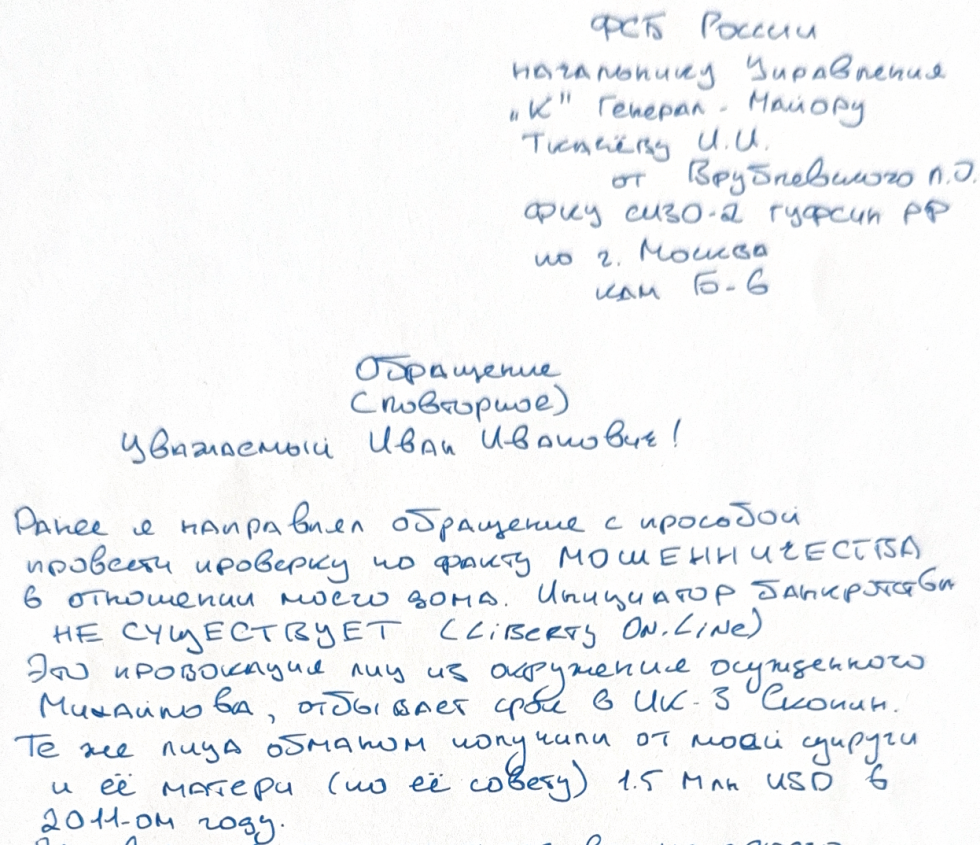 ФСБ России
начальнику Управления
„К" Генерал-Майору
Ткачёву И.И.
от Врублевского П.О.
ФКУ СИЗО-2 ГУФСИН РФ
по г. Москва
кам Б-6
Обращение
(повторное)
Уважаемый Иван Иванович!
Ранее я направлял обращение с прособой
провести проверку по факту МОШЕННИЧЕСТВА
в отношении моего дома. Инициатор банкротства
НЕ СУЩЕСТВУЕТ (LiBERTY ON.LiNe)
Это провокация лиц из окружения осужденного
Михайлова, отбывает срок в ИК-3 Скопин.
Те же лица обманом получили от моей супруги
и её матери (по её совету) 1.5 млн USD в
2011-ом году.